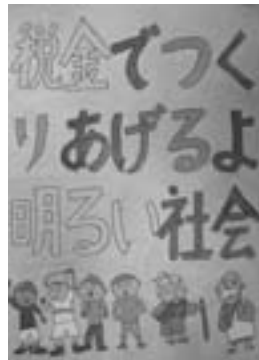 税金でつく
りあげるよ
明るい社会